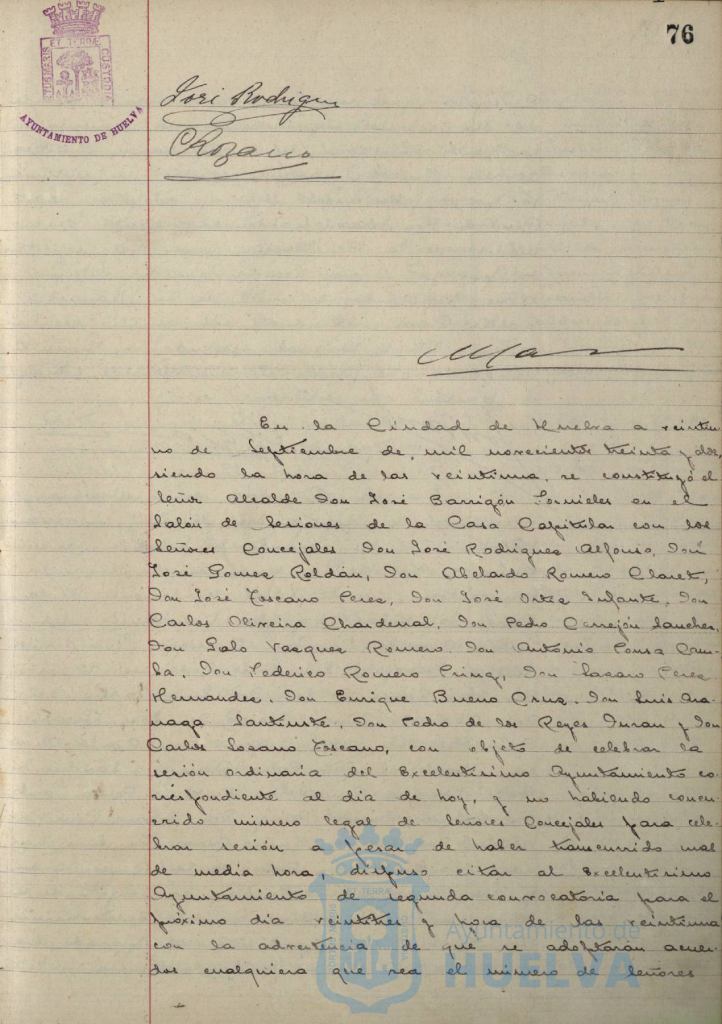 76
PORTUS MARIS ET TERRÆ CUSTODIA
AYUNTAMIENTO DE HUELVA
José Rodriguez
CLozano
En la Ciudad de Huelva a veintiu-
no de Septiembre de, mil novecientos treinta y dos,
siendo la hora de las veintiuna, se constituyó el
Señor Alcalde Don José Barrigón Fornieles en el
Salón de Sesiones de la Casa Capitular con los
Señores Concejales Don José Rodriguez Alfonso, Don
José Gomez Roldán, Don Abelardo Romero Claret,
Don José Toscano Perez, Don José Ortiz Infante, Don
Carlos Oliveira Chardenal, Don Pedro Cerrejón Sanchez,
Don Galo Vazquez Romero. Don Antonio Ponce
Don Federico Romero Don Perez
Hernandez. Don Enrique Bueno Cruz. Don Luis
Don Pedro de los Reyes Duran y Don
Carlos Lozano Toscano, con objeto de celebrar la
sesión ordinaria del Excelentisimo Ayuntamiento co-
rrespondiente al dia de hoy, y no habiendo concu-
rrido número legal de Señores Concejales para cele-
brar sesión a pesar de haber transcurrido mas
de media hora, dispuso citar al Excelentisimo
Ayuntamiento de segunda convocatoria para el
próximo dia veintitres y hora de las veintiuna
con la advertencia de que se adoptarán acuer-
dos cualquiera que sea el número de Señores
Ayuntamiento de
HUELVA